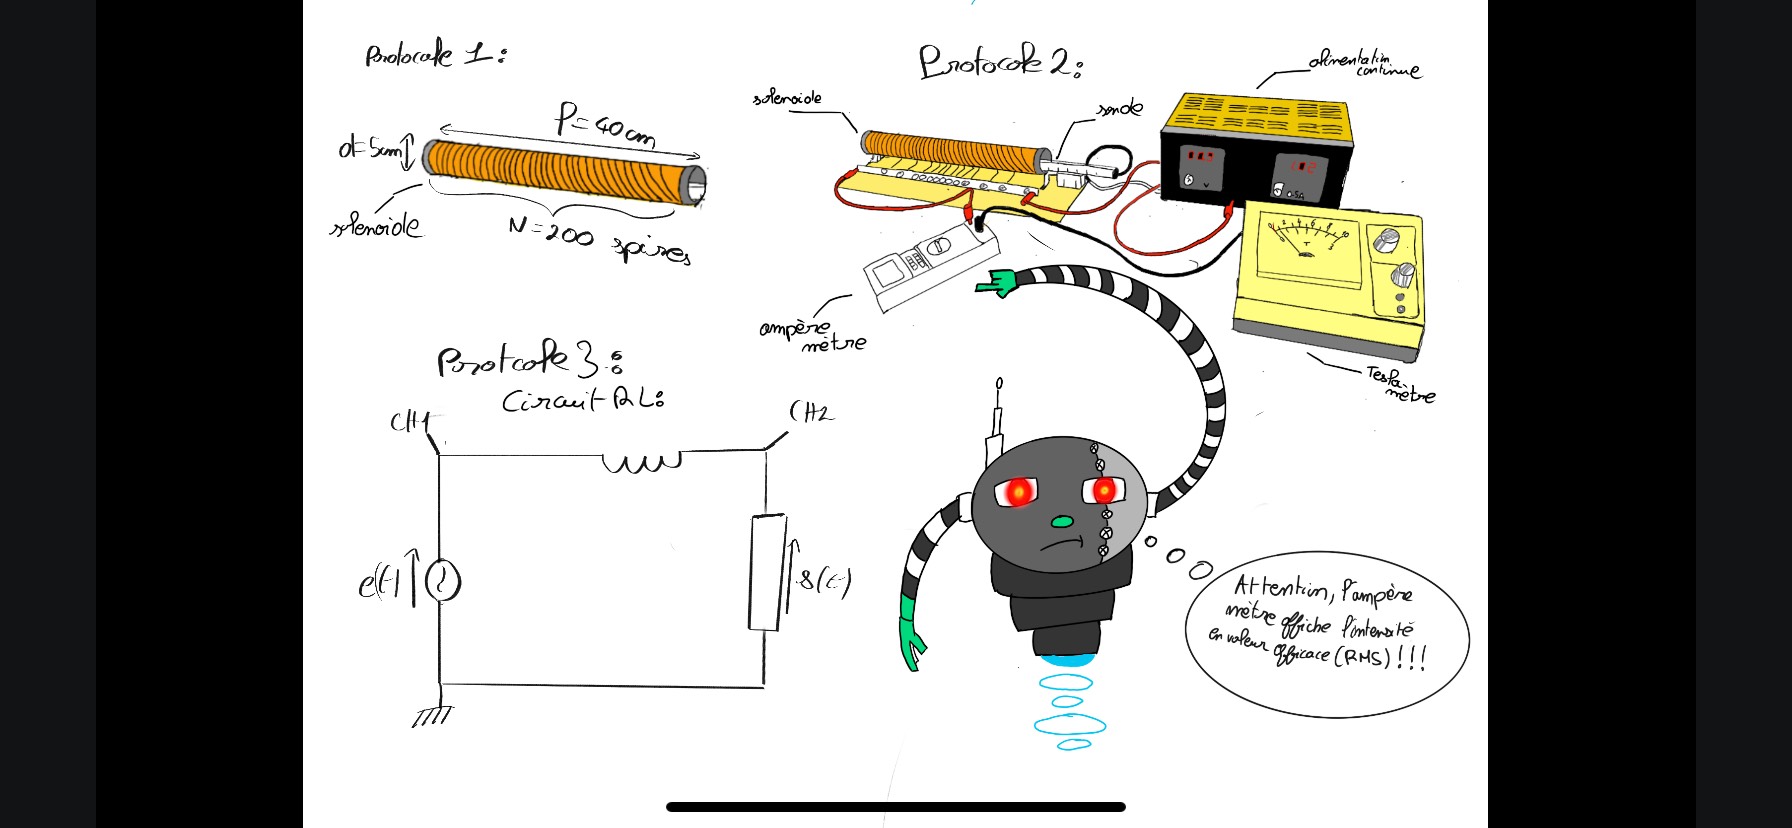 Protocole 1:
l=40cm
d=5cm
solenoide
N=200 spires
Protocole 2:
alimentation
continue
solenoide
sonde
ampère
mètre
Tesla
mètre
Protcole 3:
Circuit RL:
CH1
CH2
e(t)
s(t)
Attention, l'ampère
mètre affiche l'intensité
en valeur efficace (RMS)!!!